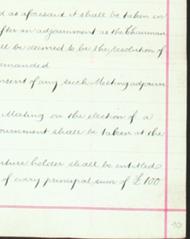 d as aforesaid it shall be taken in
after an adjournment as the Chairman
ll be deemed to be the resolution of
emanded
nsent of any such Meeting adjourn
Meeting on the election of a
ournment shall be taken at the
nture holder shall be entitled
of every principal sum of £100